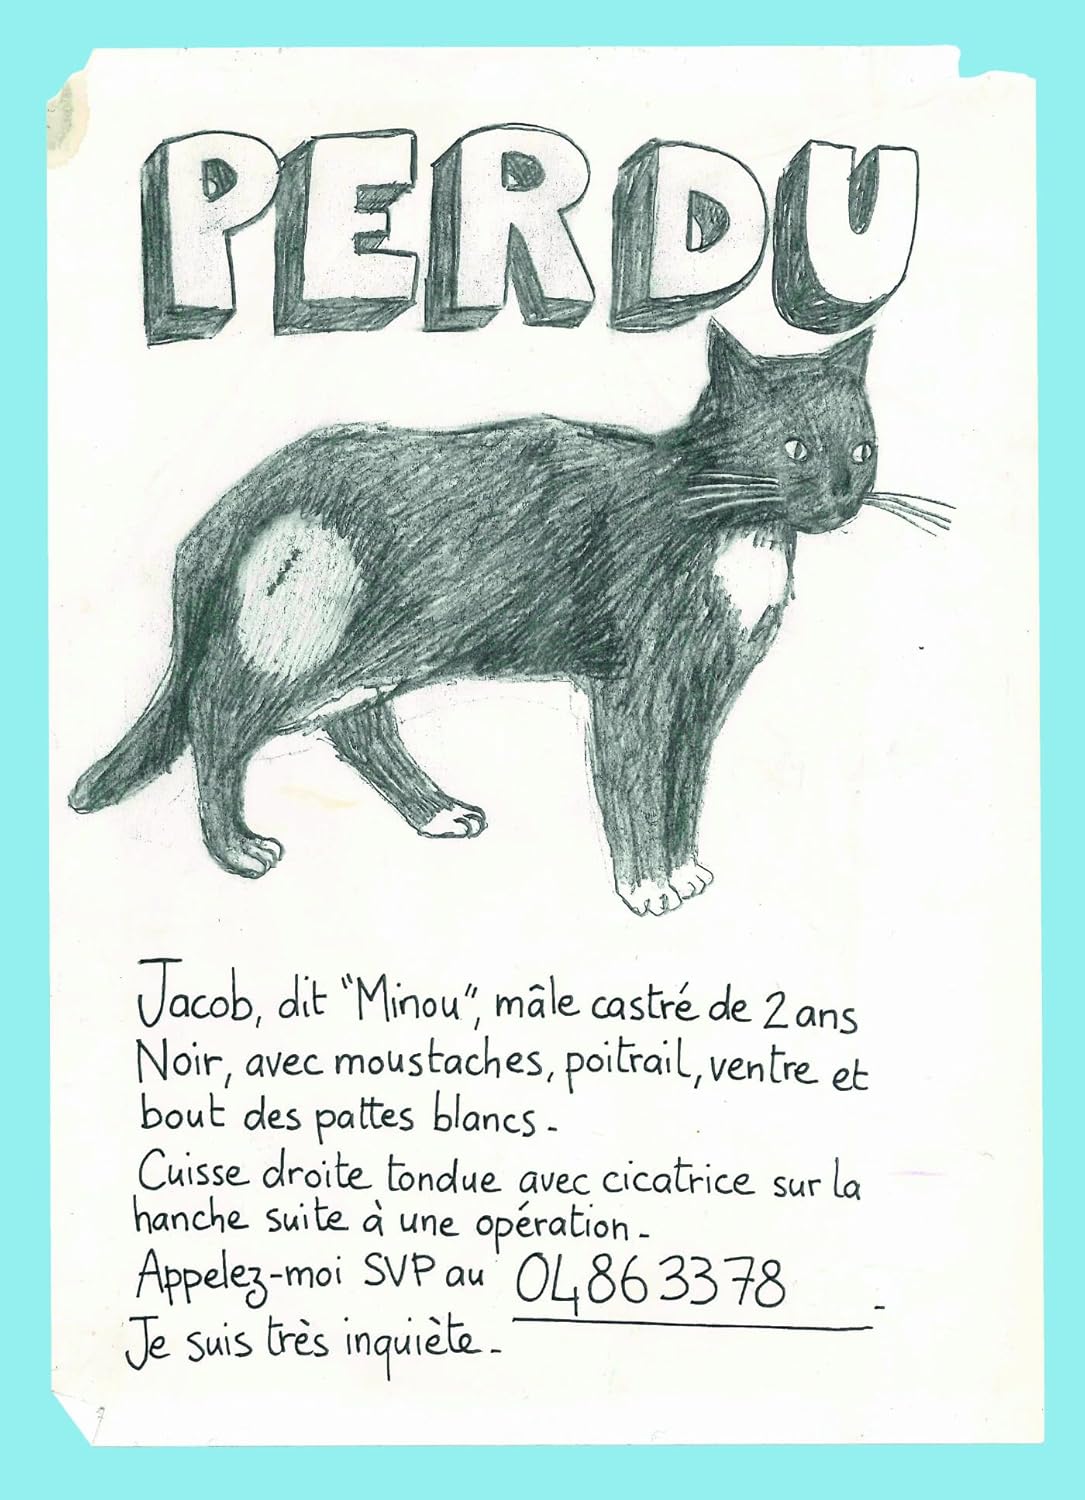 PERDU
Jacob, dit "Minou", mâle castré de 2 ans
Noir, avec moustaches, poitrail, ventre et
bout des pattes blancs -
Cuisse droite tondue avec cicatrice sur la
hanche suite à une opération -
Appelez-moi SVP au 04863378 -
Je suis très inquiète -